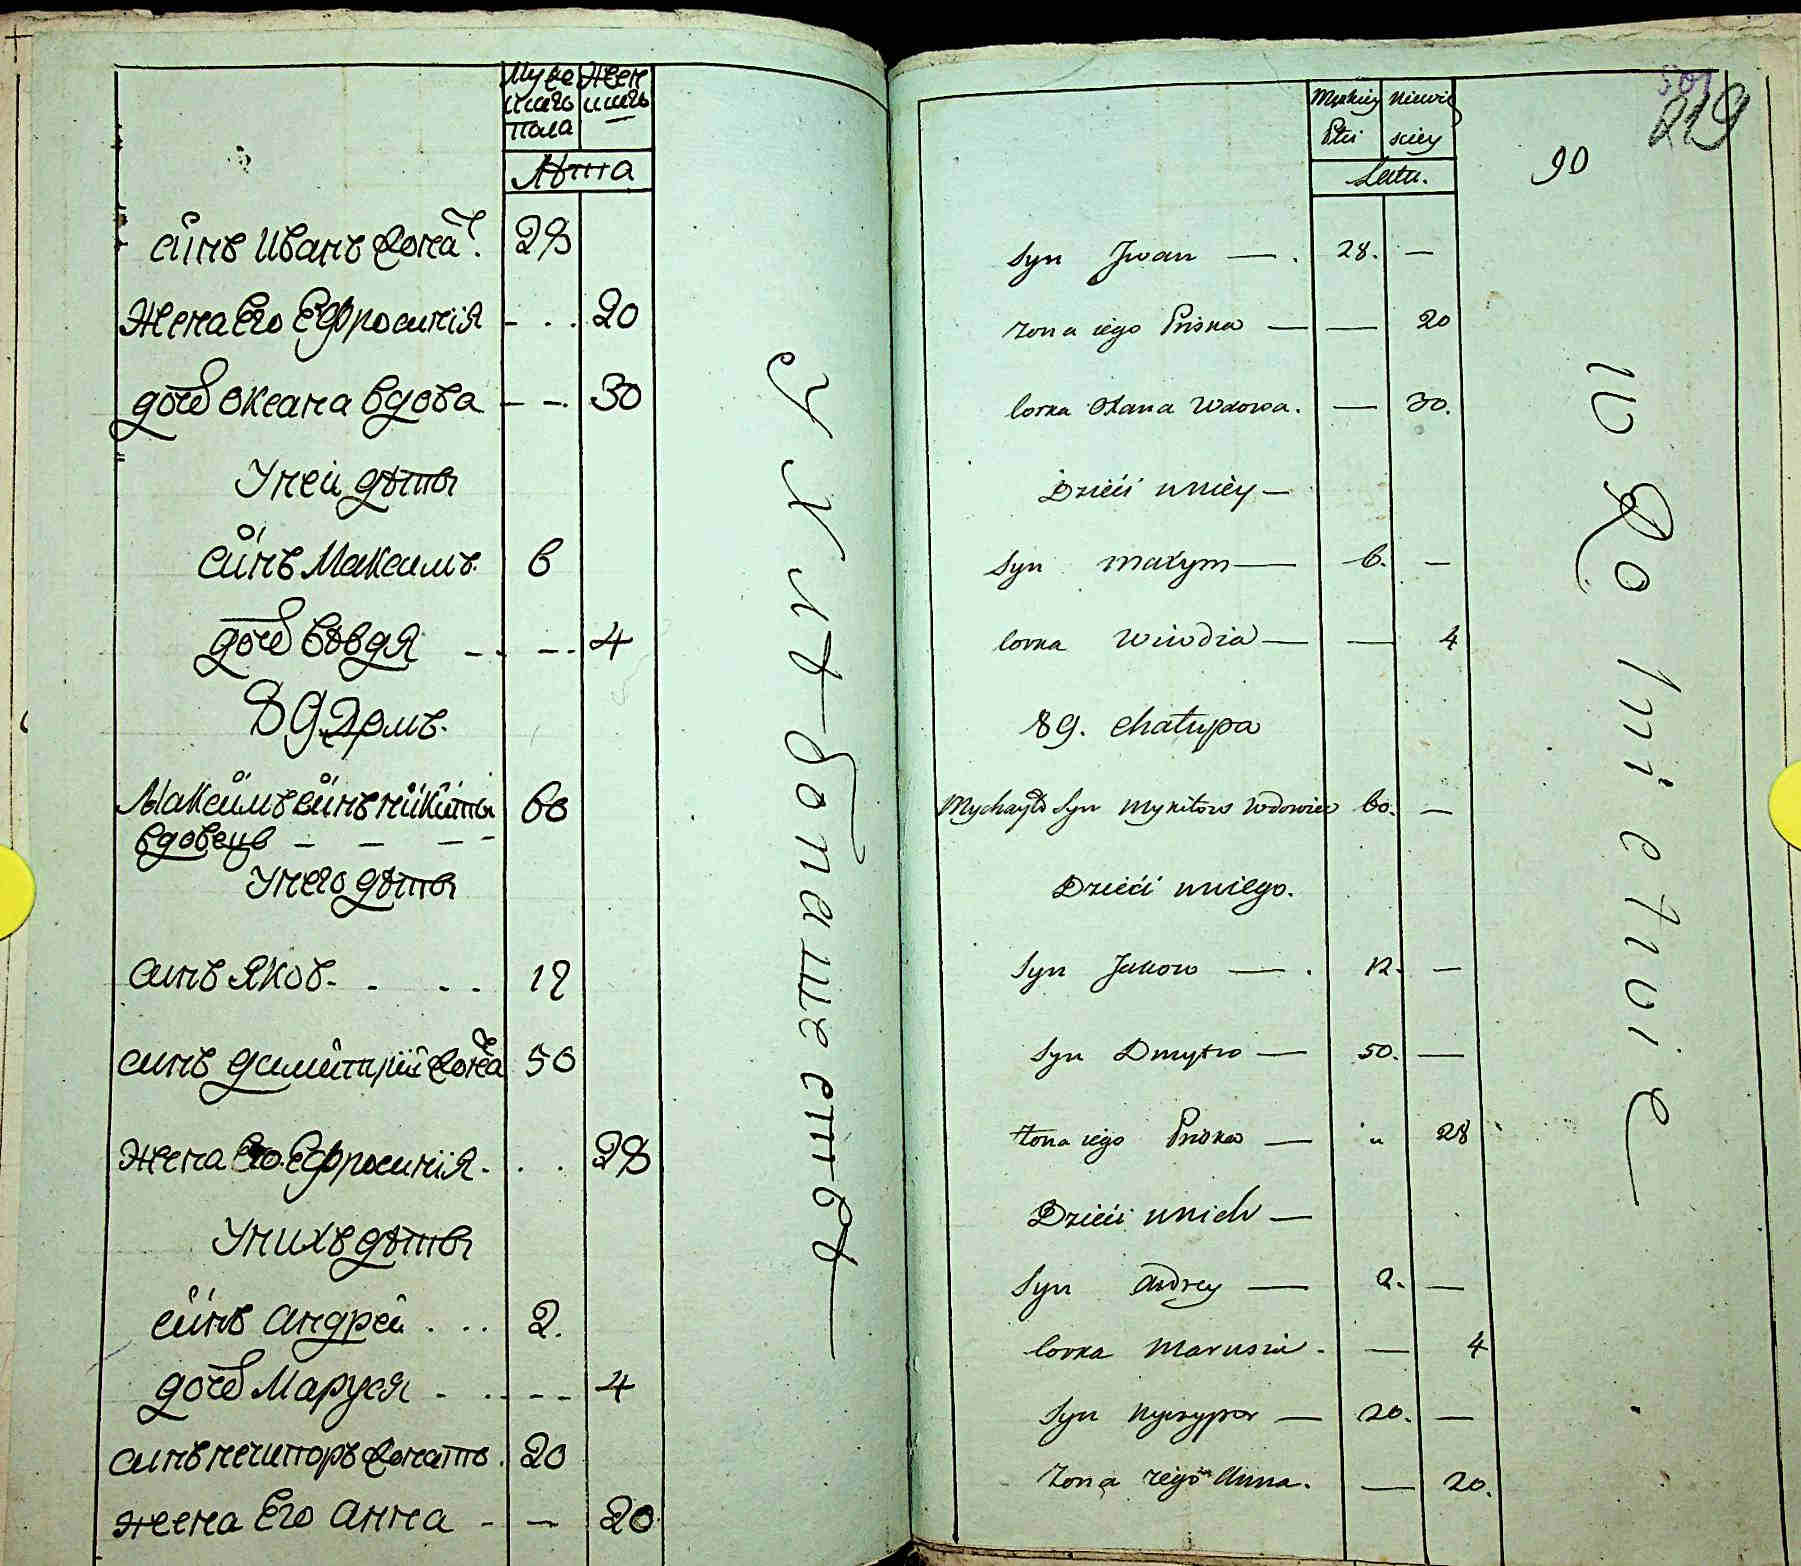 Мужескагѡ пола
Женскагѡ
Лѣта
Синъ Иванъ жонатъ. 28
Жена Его Ефросинія - . . 20
дочь Оксана вдова - - . 30
У ней дѣти
Синъ Максимъ. 6
дочь Вовдя - . - . . 4
89 Домъ.
Максимъ синъ Никити 60
вдовець - - - -
У него дѣти
Синъ Яковъ. . . . 12
Синъ Димитрій жонатъ 50
Жена Его Ефросинія . . . 28
У нихъ дѣти
Синъ Андрей . . . 2.
дочь Маруся . . . - - 4
Синъ Нечипоръ жонатъ. 20
Жена Его Анна - - 20
Męskiey Płci
Niewieskiey
Latu.
90
501
219
Syn Jwan — . 28. —
żona iego Priska — — 20
Corka Oxana Wdowa. — 30.
Dzieći unièy —
Syn maxym — 6. —
Corka Wiwdia — — 4
89. Chałupa
Mychayło Syn Mykitow Wdowiec 60. —
Dzieći uniego.
Syn Jakow — . 12. —
Syn Dmytro — 50. —
żona iego Priska — " 28
Dzieći unich —
Syn Andrey — 2. —
Corka Marusia . — 4
Syn Nyczypor — 20. —
żona iego Anna. — 20.